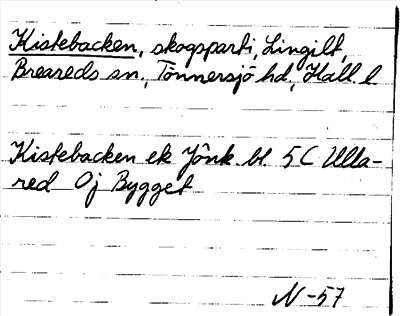 Kistebacken, skogsparti, Lingilt,
Breareds sn., Tönnersjö hd, Hall. l
Kistebacken ek Jönk bl. 5C Ulla-
red Oj Bygget
N-57